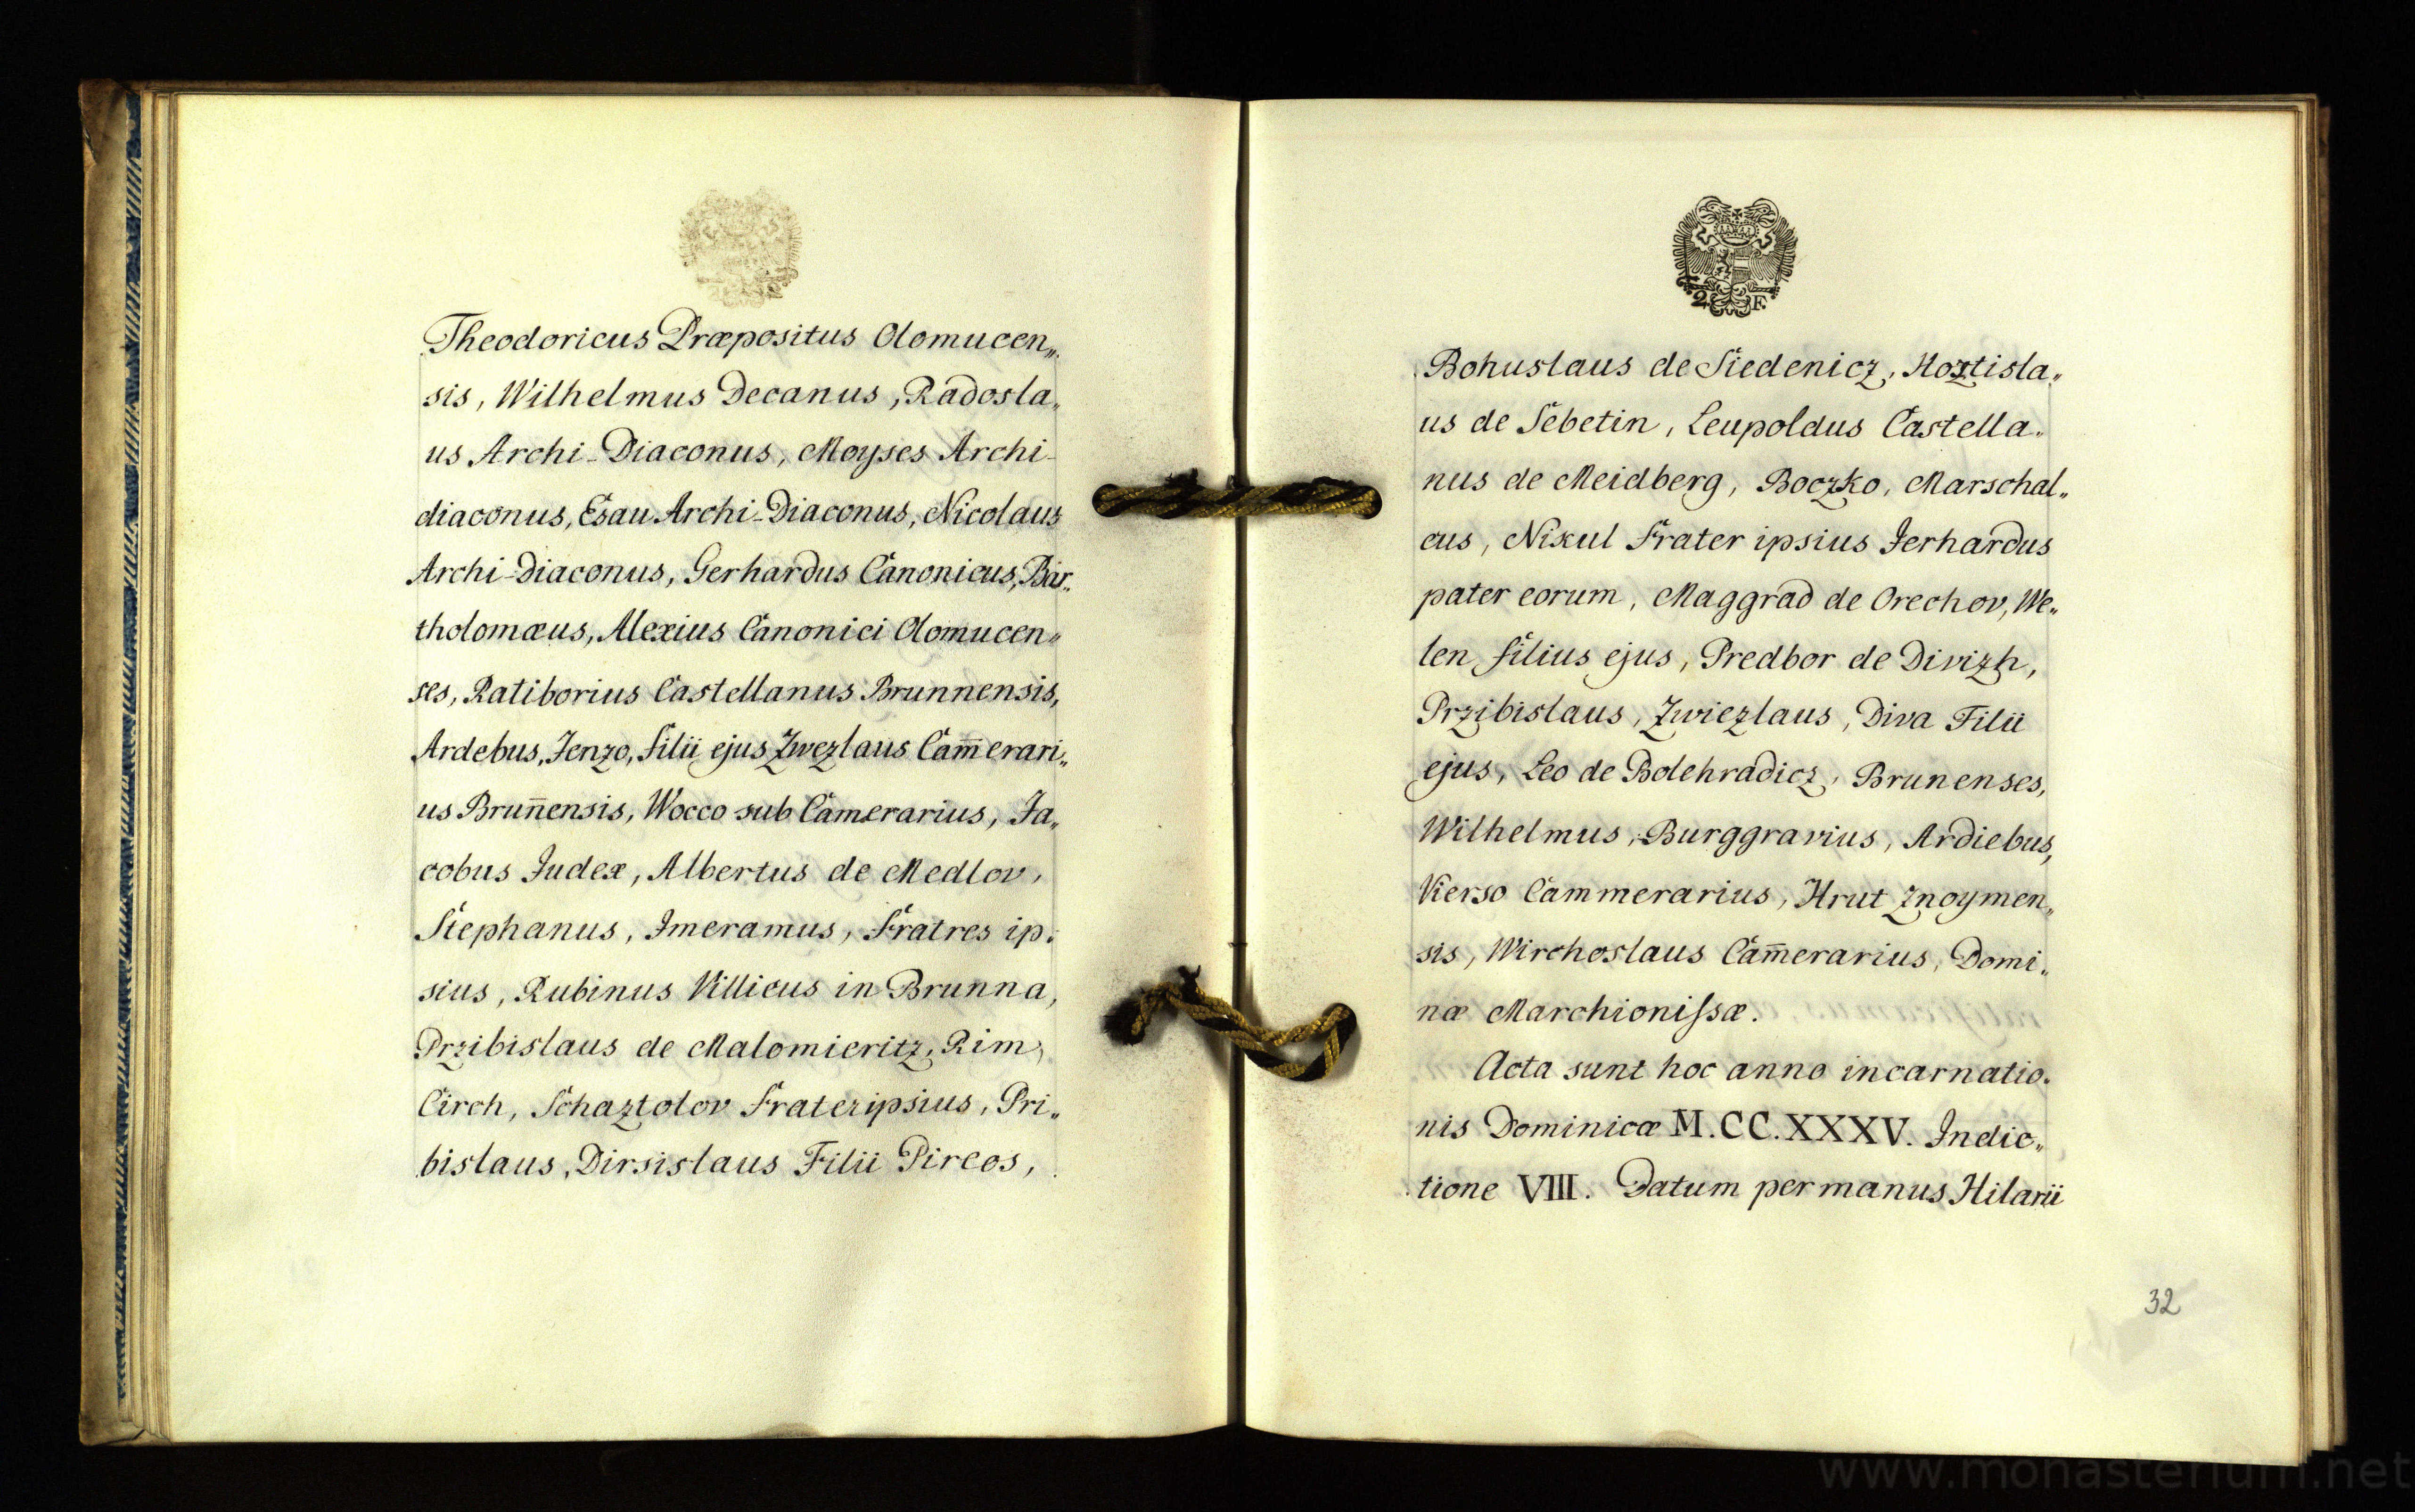 Theodoricus Præpositus Olomucen„
sis, Wilhelmus Decanus, Radosla„
us Archi-Diaconus, Moyses Archi-
diaconus, Esau Archi-Diaconus, Nicolaus
Archi-Diaconus, Gerhardus Canonicus, Bar„
tholomæus, Alexius Canonici Olomucen„
ses, Ratiborius Castellanus Brunnensis,
Ardebus, Jenzo, filii ejus Zwezlaus Cam̄erari„
us Brun̄ensis, Wocco sub Camerarius, Ja„
cobus Judex, Albertus de Medlov,
Stephanus, Imeramus, Fratres ip„
sius, Rubinus Villicus in Brunna,
Przibislaus de Malomieritz, Rim,
Circh, Schaztolov Frater ipsius, Pri„
bislaus, Dirsislaus Filii Pircos,
2 F.
Bohuslaus de Siedenicz, Hoztisla„
us de Sebetin, Leupoldus Castella„
nus de Meidberg, Boczko, Marschal„
cus, Nixul Frater ipsius Jerhardus
pater eorum, Maggrad de Orechov, We„
len filius ejus, Predbor de Divizh,
Przibislaus, Zwiezlaus, Diva Filii
ejus, Leo de Bolehradicz, Brunenses,
Wilhelmus, Burggravius, Ardiebus,
Vierso Cammerarius, Hrut Znoymen„
sis, Wirchoslaus Cam̄erarius, Domi„
næ Marchionissæ.
Acta sunt hoc anno incarnatio„
nis Dominicæ M.CC.XXXV. Indic„
tione VIII. Datum per manus Hilarii
32
www.monasterium.net